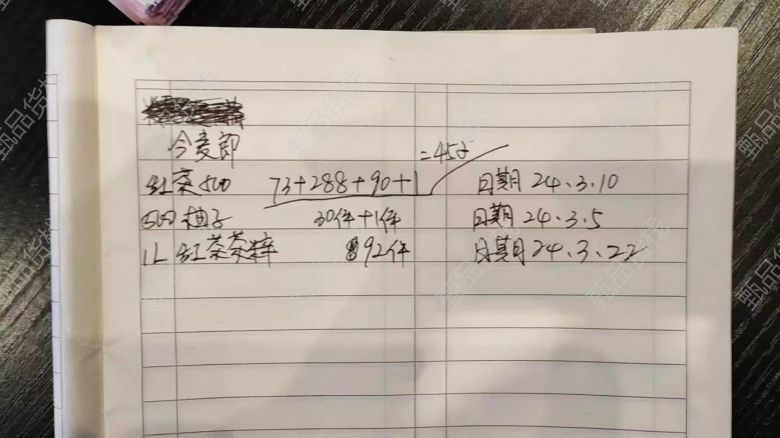 今麦郎
=452
红茶500 73+288+90+1 日期 24.3.10
500 柚子 30件+1件 日期 24.3.5
1L 红茶茶粹 92件 日期 24.3.22
甄品货栈